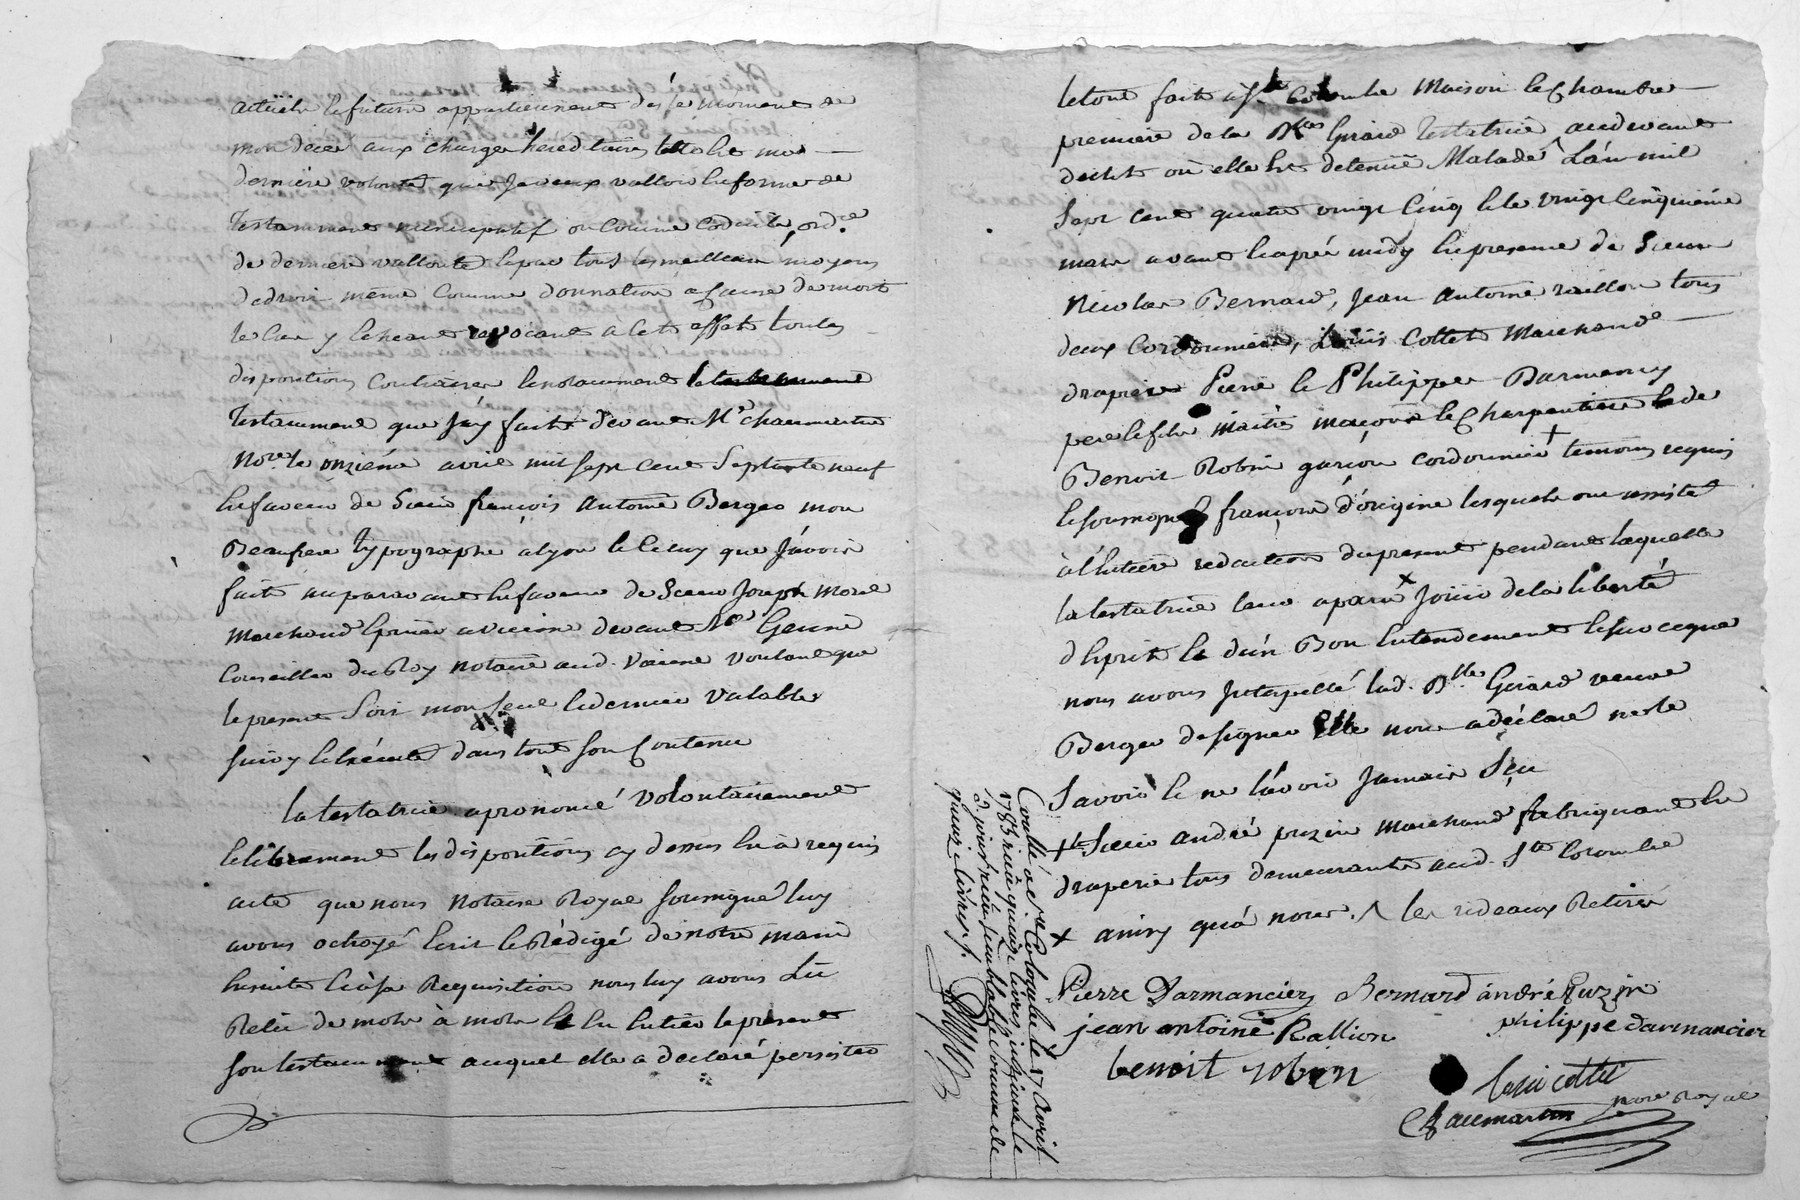 actüels et futurs appartiennent dès le moment de
mon décés aux charges hereditaires telle est ma
derniére volonté que je veux valloir en forme de
testament nuncupatif ou comme codicile, ord.ce
de derniere vollonté et par tous les meilleurs moyens
de droit même comme donnation a cause de mort
revocant a cet effet toutes
dispositions contraires et notamment le
testament que j'ay fait devant Me chaumartin
Nore. le onziéme avril mil sept cent septante neuf
en faveur de Sieur françois Antoine Berger mon
Beaufrere typographe a lyon et celuy que j'avois
fait auparavant en faveur de Sieur Joseph morel
marchand Epicier a vienne devant Me Gerin
Conseiller du Roy notaire aud. vienne voulant que
le present soit mon seul et dernier valable
suivy et éxécuté dans tout son Contenu
la testatrice a prononcé volontairement
et librement les dispositions cy dessus en a requis
acte que nous notaire Royal soussigné luy
avons octroyé Ecrit et Rédigé de notre main
Ensuite et à sa Requisition nous luy avons Lû
Relû de mots à mots et en Entier le present
son testament auquel elle a declaré persister
le tout fait a Ste Colombe Maison et Chambre
premiere de la Girard testatrice audevant
du lit où elle est detenüe Malade ^ L'an mil
sept cent quatre vingt Cinq et le vingt cinquiéme
mars avant l'aprés midy en presence de Sieurs
Nicolas Bernard, Jean Antoine raillon tous
deux Cordonniers, Loüis Cottet Marchand
drapier Pierre et Philippe Darmancy
pere et fils maitres maçons et Charpentiers et de
Benoit Robin garçon cordonnier + temoins requis
et soussignés françois d'origine lesquels ont assisté
à l'Entiere redaction du present pendant laquelle
la testatrice leur a paru x Joüir de la liberté
d'Esprit et d'un Bon Entendement et sur ce que
nous avons Interpellé lad. Dlle Girard veuve
Berger de signer Elle nous a déclaré ne le
Savoir et ne l'avoir Jamais sçu
+ et Sieur andré puzin marchand fabriquant en
draperie tous demeurants aud. Ste Colombe
x ainsy qu'à nous. ^ les rideaux Retirés
Pierre Darmanciez Bernard andré Puzin
jean antoine Rallion philippe darmancier
benoit robin
Louis cottet
Chaumartin nore Royal
Controllé à Ste Colombe le 17 avril
1785 reçu quinze livres insinué le
d. jour reçu semblable somme de
quinze livres f.